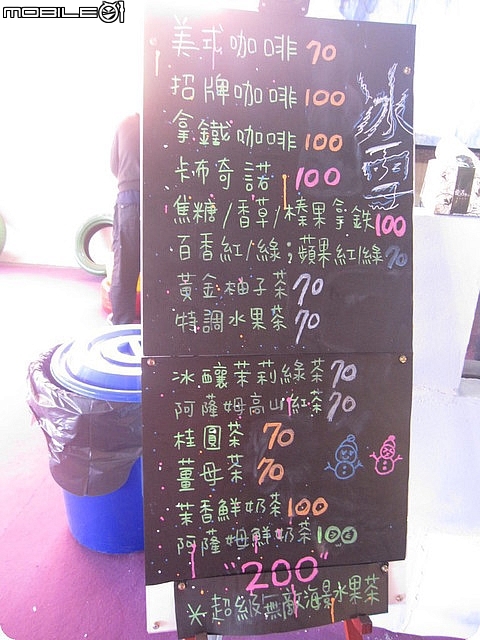 MOBILE01
美式咖啡 70
招牌咖啡 100
拿鐵咖啡 100
卡布奇諾 100
焦糖/香草/榛果拿鉄 100
百香紅/綠;蘋果紅/綠 70
黃金柚子茶 70
特調水果茶 70
冰雪
冰釀茉莉綠茶 70
阿薩姆高山紅茶 70
桂圓茶 70
薑母茶 70
茉香鮮奶茶 100
阿薩姆鮮奶茶 100
"200"
*超級無敵海景水果茶